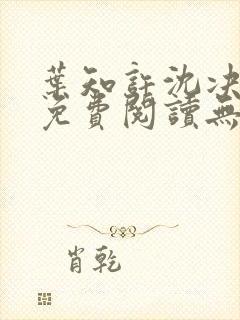 葉知許沈决
免費閱讀無
肖乾